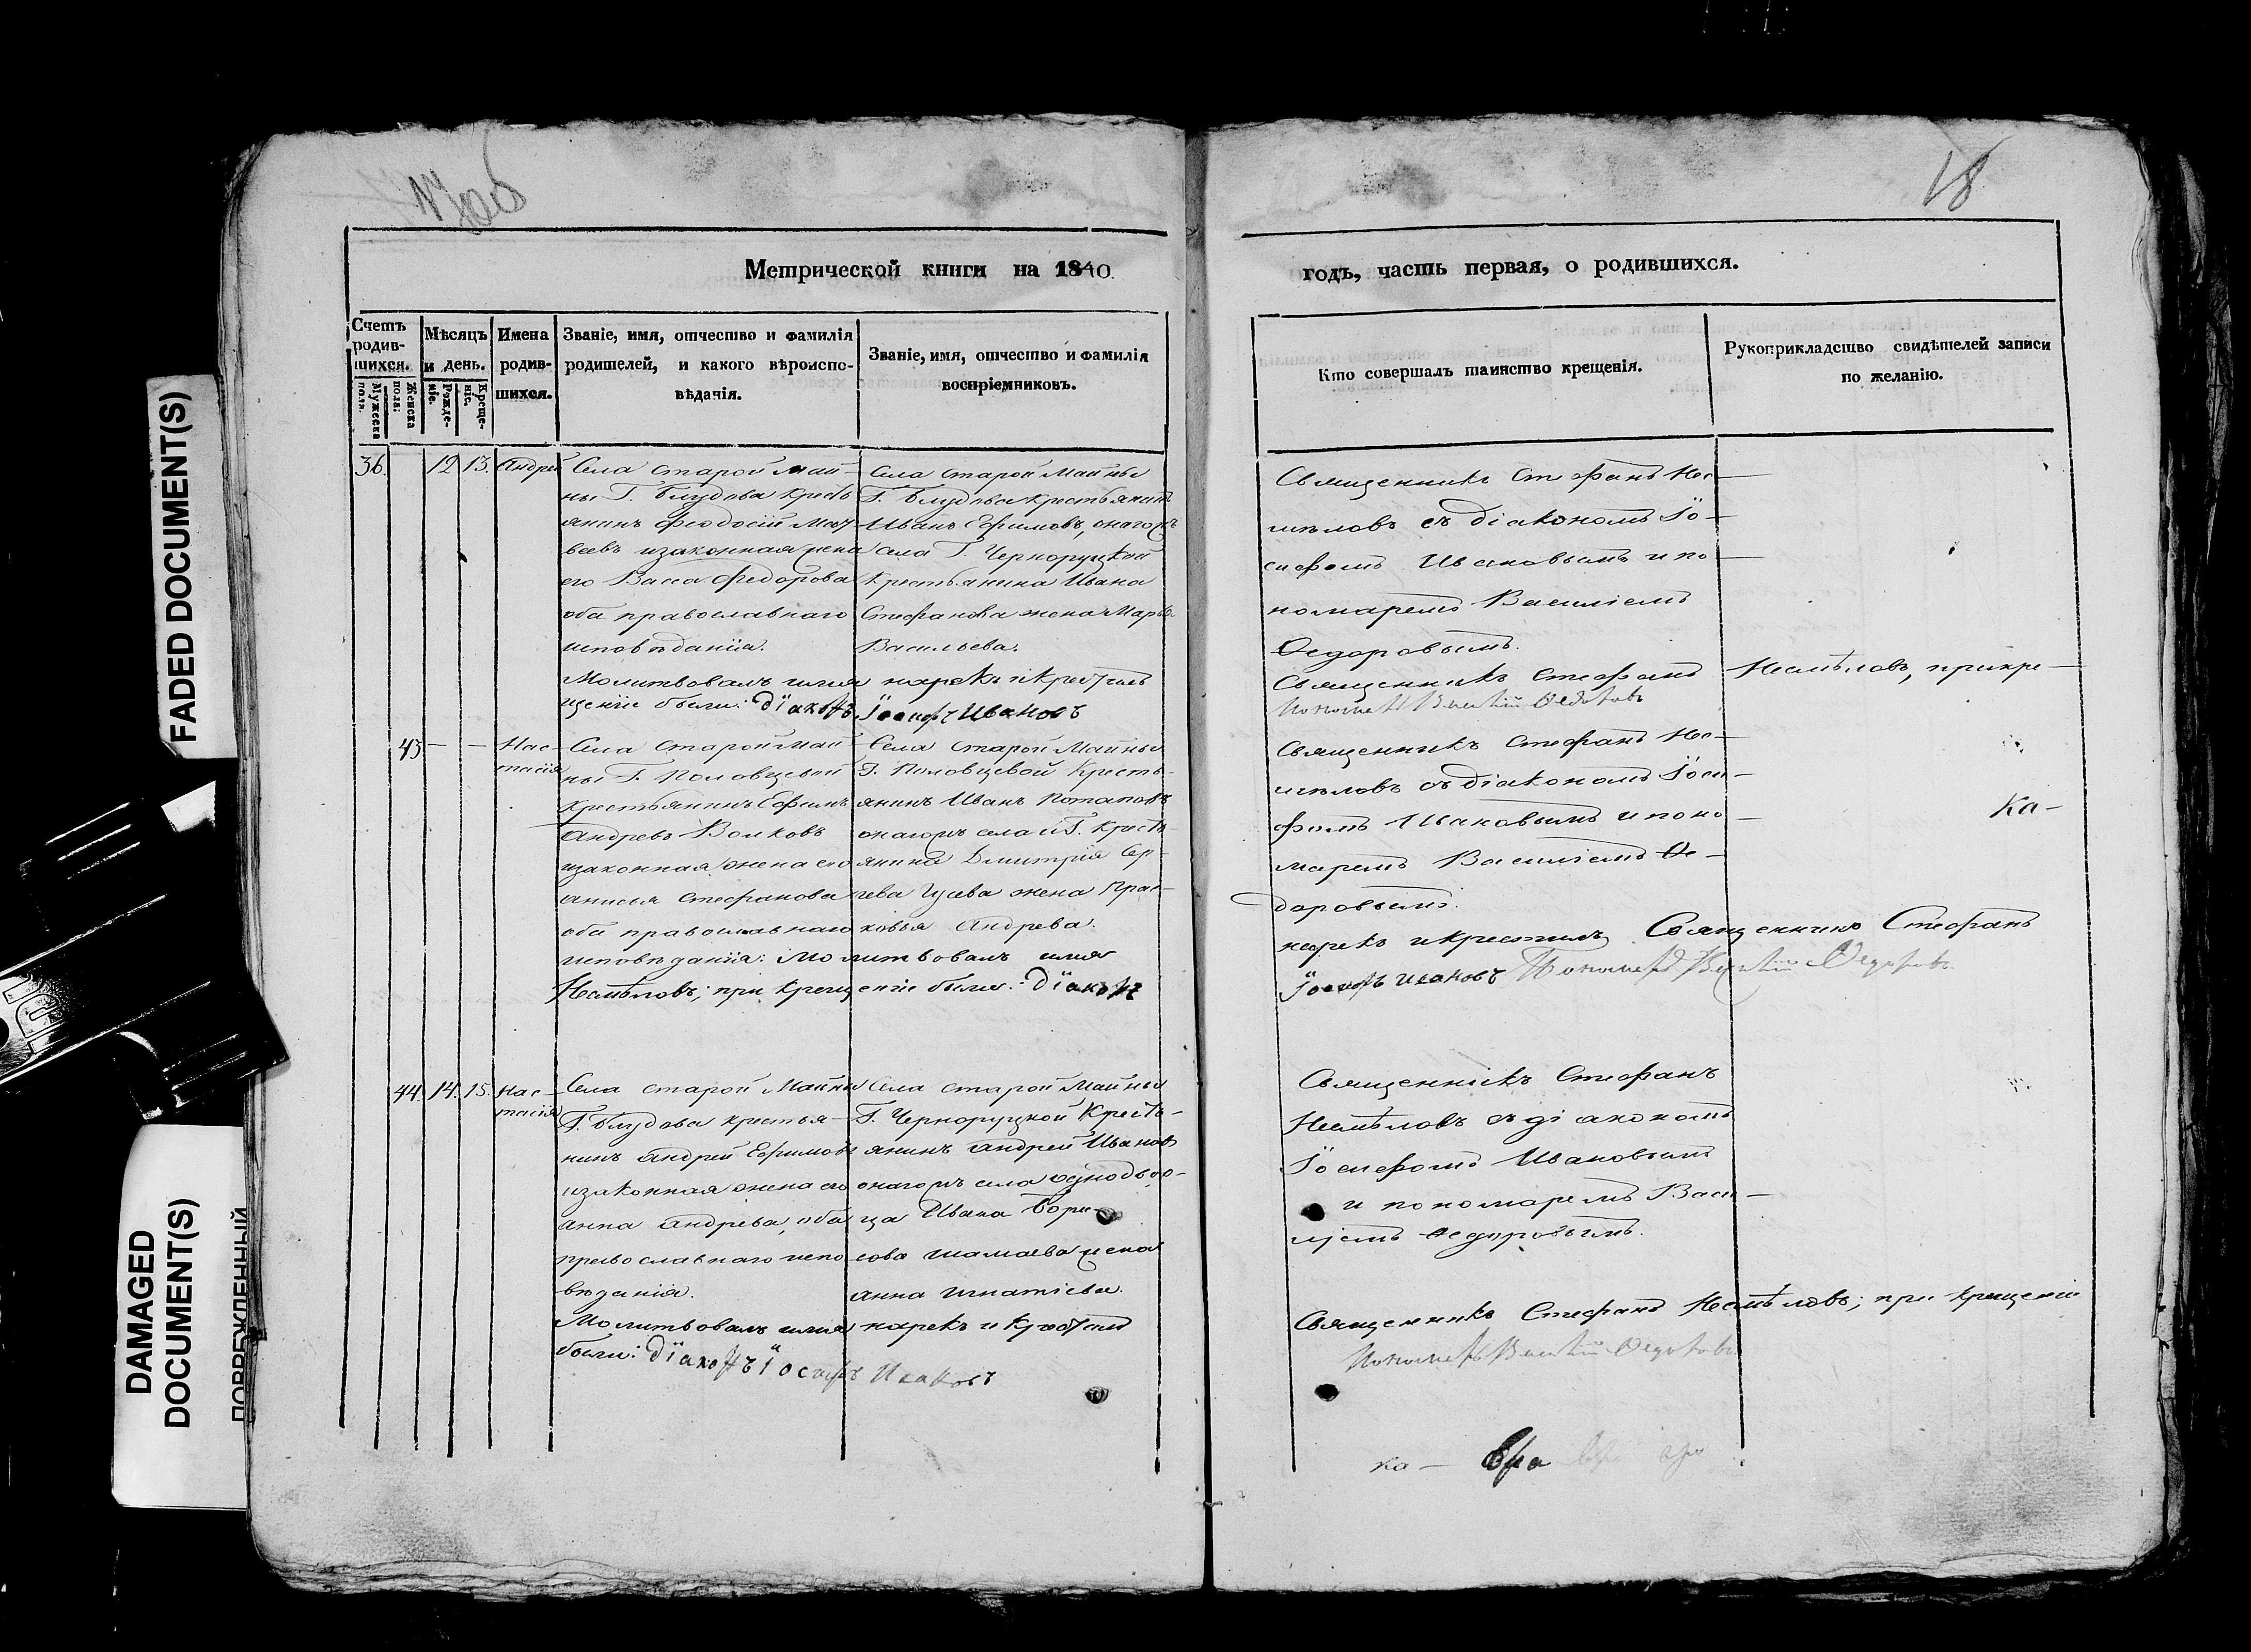 17об
18
Метрической книги на 1840.
годъ, часть первая, о родившихся.
Счетъ родив-шихся.
Мужеска пола.
Женска пола.
Мѣсяцъ и день.
Рожде-ніе.
Креще-ніе.
Имена родив-шихся.
Званіе, имя, отчество и фамилія
родителей, и какого вѣроиспо-
вѣданія.
Званіе, имя, отчество и фамилія
воспріемниковъ.
Кто совершалъ таинство крещенія.
Рукоприкладство свидѣтелей записи
по желанію.
36. 12 13. Андрей
Села Старой Май-
ны Г. Блудова кресть
янинъ Феодосій Мат-
веевъ изаконная жена
его Васса Федорова
оба православнаго
исповѣданія.
Села Старой Майны
Г. Блудова крестьянинъ
Иванъ Ефимовъ, онагожъ
села Г. Черноруцкой
Крестьянина Ивана
Стефанова жена Марья
Васильева.
Священникъ Стефанъ Нес-
мѣловъ съ діакономъ Іо-
сифомъ Ивановымъ и по-
номаремъ Василіемъ
Ѳедоровымъ.
Молитвовалъ имя нарекъ и Крестилъ
Священникъ Стефанъ Несмѣловъ, прикре-
щеніи были: діаконъ Іосифъ Ивановъ
Пономарь Василій Ѳедоровъ
43 — — Нас-
тасія
Села Старой Май-
ны Г. Половцевой
Крестьянинъ Ефимъ
Андревъ Волковъ
изаконная жена его
Анисья Стефанова
оба православнаго
исповѣданія:
Села Старой Майны
Г. Половцевой Кресть-
янинъ Иванъ Потаповъ
онагожъ села и Г. Кресть-
янина Дмитрія Сер-
геева Гусева жена Прас-
ковья Андрева.
Священникъ Стефанъ Нес-
мѣловъ съ діакономъ Іоси-
фомъ Ивановымъ и поно-
маремъ Василіемъ Ѳе-
доровымъ.
Ка-
Молитвовалъ имя
нарекъ и крестилъ Священникъ Стефанъ
Несмѣловъ; при крещеніе были: діаконъ
Іосифъ Ивановъ Пономарь Василій Ѳедоровъ
44. 14. 15. Нас-
тасія
Села Старой Майны
Г. Блудова крестья-
нинъ Андрей Ефимовъ
изаконная жена его
Анна Андрева, оба
православнаго испо
вѣданія.
Села Старой Майны
Г. Черноруцкой Кресть-
янинъ Андрей Ивановъ
онагожъ села однодвор-
ца Ивана Бори-
сова Шамаева жена
Анна Игнатіева.
Священникъ Стефанъ
Несмѣловъ съ діакономъ
Іосифомъ Ивановымъ
и пономаремъ Васи-
ліемъ Ѳедоровымъ.
Молитвовалъ имя нарекъ и Крестилъ
Священникъ Стефанъ Несмѣловъ; при крещеніи
были: діаконъ Іосифъ Ивановъ
Пономарь Василій Ѳедоровъ
ка —
FADED DOCUMENT(S)
DAMAGED
DOCUMENT(S)
ПОВРЕЖДЕННЫЙ